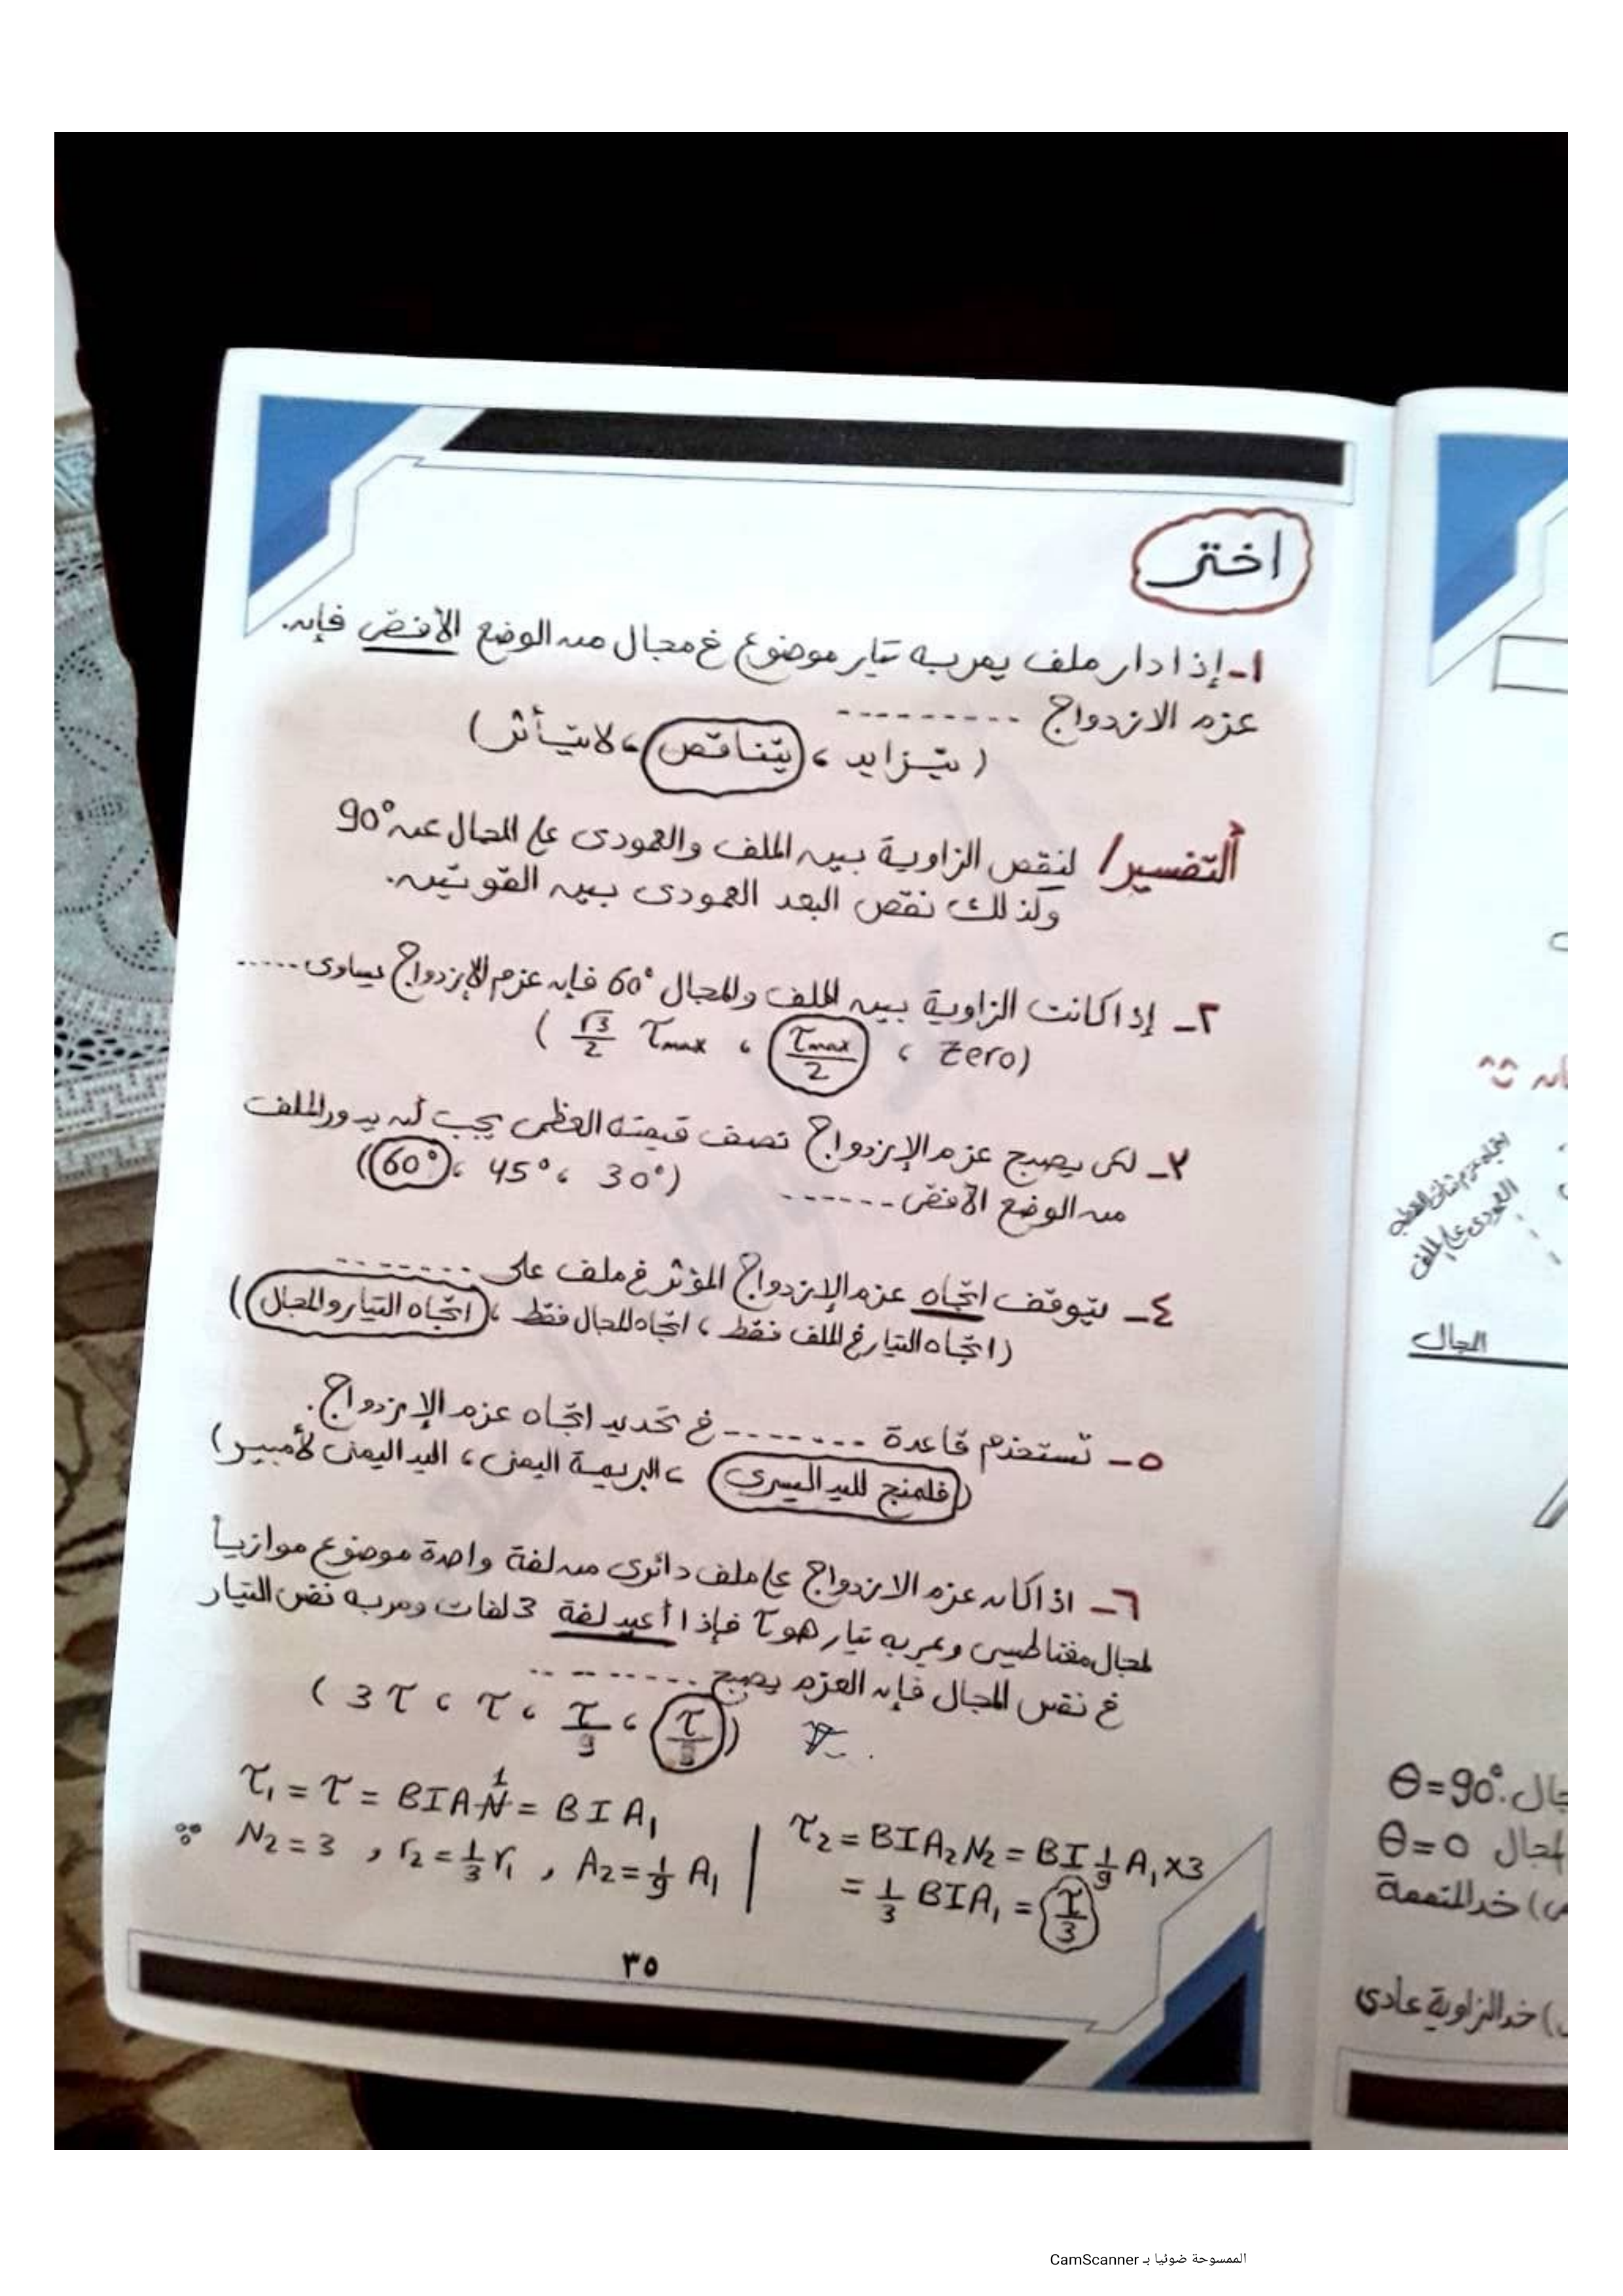 اختر
١- إذا دار ملف يمر به تيار موضوع في مجال من الوضع الأفقي فإن
عزم الازدواج ---------
( يتزايد ، يتناقص ، لا يتأثر)
التفسير/ لنقص الزاوية بين الملف والعمودى على المجال عن 90°
ولذلك نقص البعد العمودى بين القوتين.
٢- إذا كانت الزاوية بين الملف والمجال 60° فإن عزم الإزدواج يساوى -----
( √3/2 τmax ، τmax/2 ، Zero)
٣- لكى يصبح عزم الإزدواج نصف قيمته العظمى يجب أن يدور الملف
من الوضع الأفقى ------ (60° ، 45° ، 30°)
٤- يتوقف اتجاه عزم الإزدواج المؤثر في ملف على -------
(اتجاه التيار في الملف فقط ، اتجاه المجال فقط ، اتجاه التيار والمجال)
٥- تستخدم قاعدة -------- في تحديد اتجاه عزم الإزدواج.
(فلمنج لليد اليسرى ، البريمة اليمنى ، اليد اليمنى لأمبير)
٦- اذا كان عزم الازدواج على ملف دائرى من لفة واحدة موضوع موازياً
لمجال مغناطيسى ويمر به تيار هو τ فإذا أعيد لفة 3 لفات ومر به نفس التيار
في نفس المجال فإن العزم يصبح ---------
( 3τ ، τ ، τ/9 ، τ/3)
τ₁ = τ = BIAN 1 = BIA₁
∵ N₂ = 3 , r₂ = 1/3 r₁ , A₂ = 1/9 A₁
τ₂ = BIA₂N₂ = BI 1/9 A₁ x3
= 1/3 BIA₁ = τ/3
٣٥
اتجاه عزم ثنائى القطب
العمودى على الملف
المجال
جال. θ=90°
لمجال θ=0
) خد المتممة
) خد الزاوية عادى
الممسوحة ضوئيا بـ CamScanner